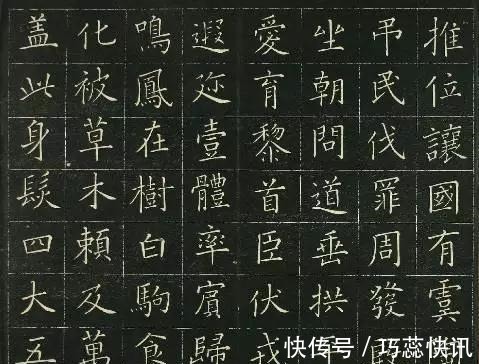 推位讓國有虞
吊民伐罪周發
坐朝問道垂拱
愛育黎首臣伏戎
遐迩壹體率賓歸
鳴鳳在樹白駒食
化被草木賴及萬
盖此身髮四大五
快传号 / 巧蕊快讯